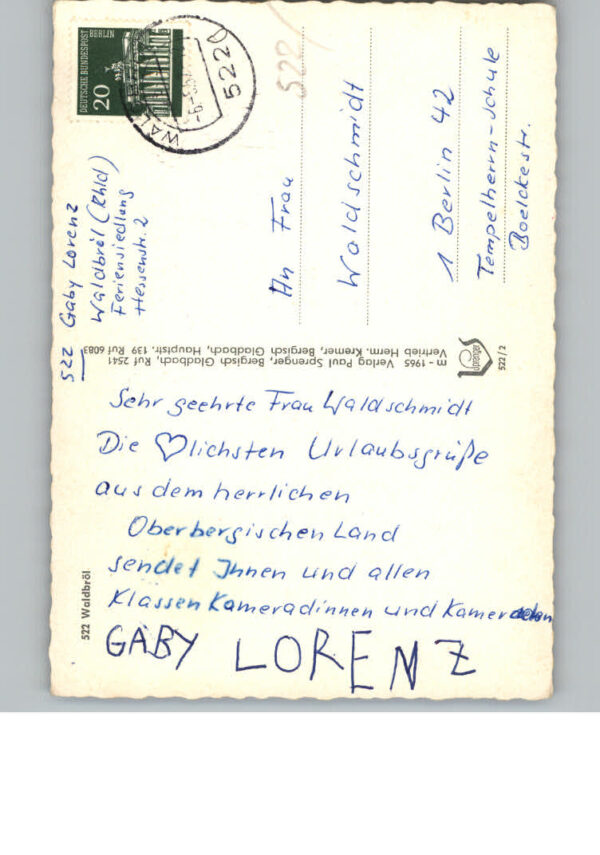 DEUTSCHE BUNDESPOST
BERLIN
20
5220
522/
522 Gaby Lorenz
Waldbröl (Rhld)
Feriensiedlung
Hessenstr. 2
An Frau
Waldschmidt
1 Berlin 42
Tempelherrn-Schule
Boelckestr.
m - 1965 Verlag Paul Sprenger, Bergisch Gladbach, Ruf 2541
Vertrieb Herm. Kremer, Bergisch Gladbach, Hauptstr. 139 Ruf 6083
Sprenger
522/2
Sehr geehrte Frau Waldschmidt
Die ♡lichsten Urlaubsgrüße
aus dem herrlichen
Oberbergischen Land
sendet Ihnen und allen
Klassenkameradinnen und Kameraden
GABY LORENZ
522 Waldbröl